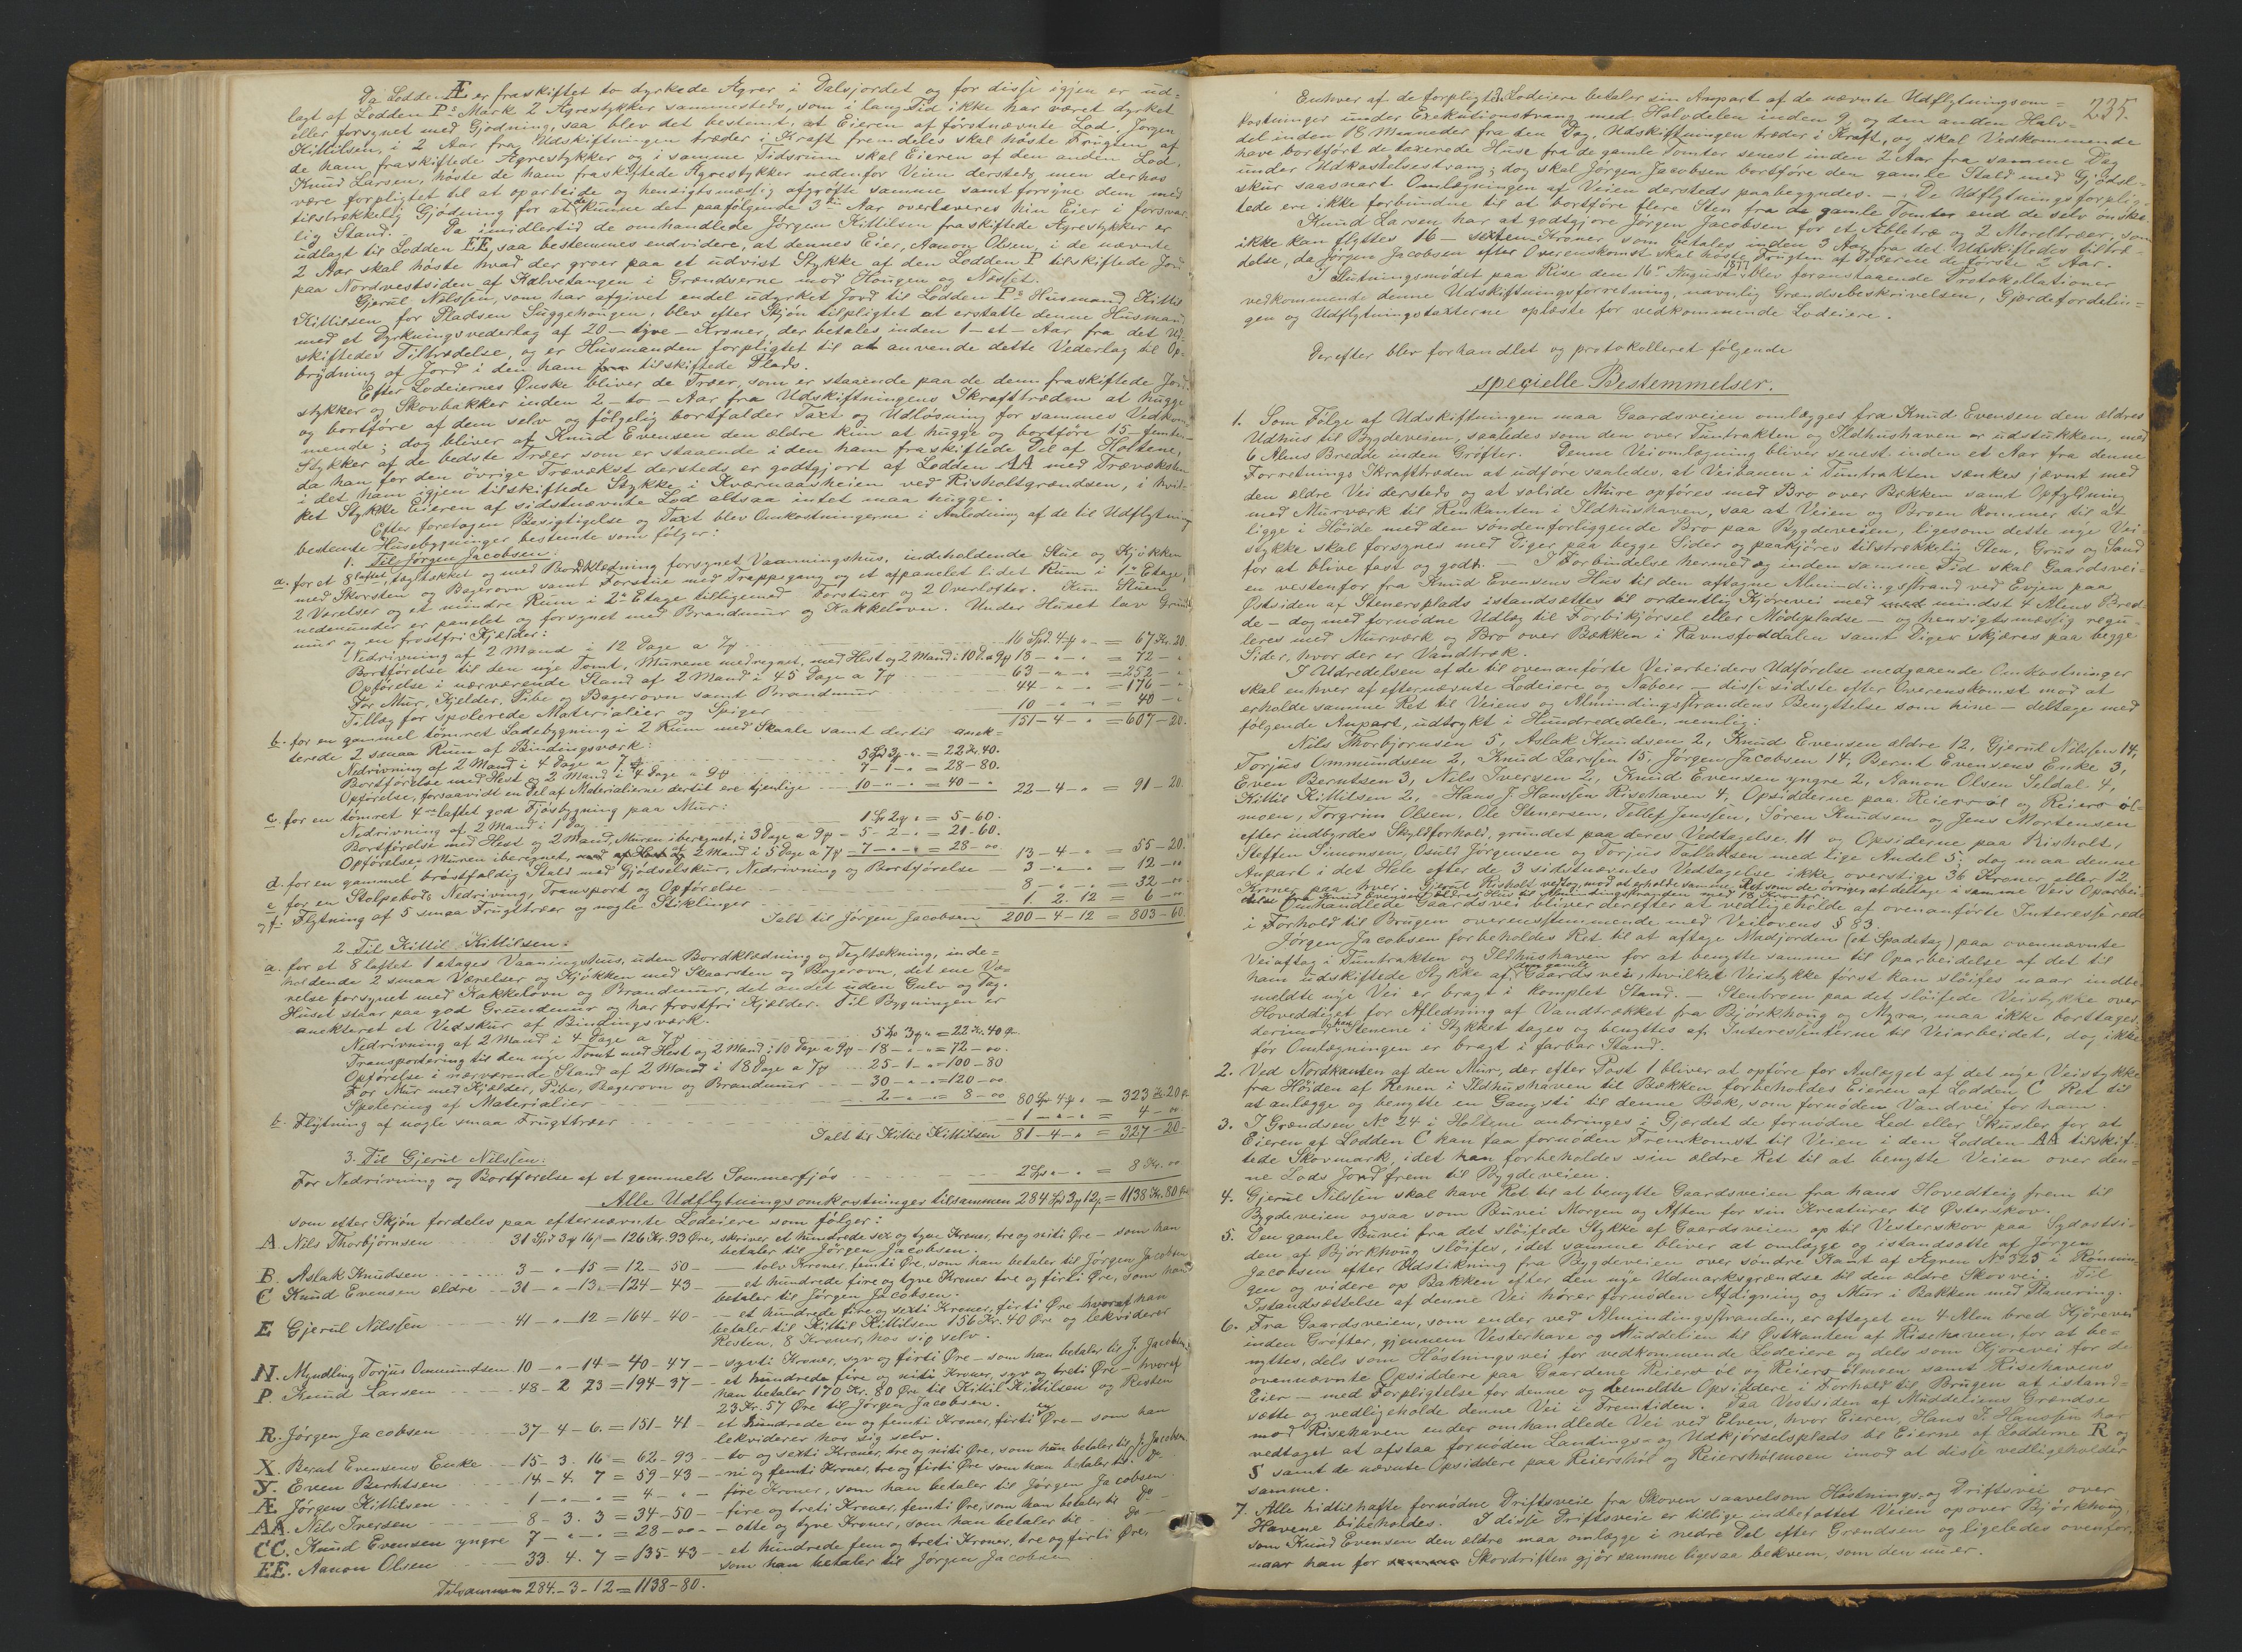 Da Lodden Æ er fraskiftet to dyrkede Agrer i Dalsjordet og for disse igjen er ud-
lagt af Lodden P's Mark 2 Agrestykker sammesteds, som i lang Tid ikke har været dyrket
eller forsynet med Gjødning, saa blev det bestemt, at Eieren af førstnævnte Lod, Jørgen
Kittilsen, i 2 Aar fra Udskiftningen træder i Kraft fremdeles skal høste Frugten af
de ham fraskiftede Agrestykker og i samme Tidsrum skal Eieren af den anden Lod,
Knud Larsen, høste de ham fraskiftede Agrestykker nedenfor Veien dersteds, men derhos
være forpligtet til at oparbeide og hensigtsmæssig afgrøfte samme samt forsyne dem med
tilstrækkelig Gjødning for at de kunne det paafølgende 3die Aar overleveres hin Eier i forsvar-
lig Stand. - Da imidlertid de omhandlede Jørgen Kittilsen fraskiftede Agrestykker er
udlagt til Lodden EE, saa bestemmes endvidere, at dennes Eier, Aanon Olsen, i de nævnte
2 Aar skal høste hvad der groer paa et udvist Stykke af den Lodden P tilskiftede Jord
paa Nordvestsiden af Kalvetangen i Grændserne mod Haugen og Næsset.
Gjerul Nilssen, som har afgivet endel udyrket Jord til Lodden P's Husmand Kittil
Kittilsen for Pladsen Suggehougen, blev efter Skjøn tilpligtet at erstatte denne Husmand
med et Dyrkningsvederlag af 20 - tyve - Kroner, der betales inden 1 - et - Aar fra det Ud-
skiftedes Tiltrædelse, og er Husmanden forpligtet til at anvende dette Vederlag til Op-
brydning af Jord i den ham tilskiftede Plads.
Efter Lodeiernes Ønske bliver de Træer, som er staaende paa de dem fraskiftede Jord-
stykker og Skovbakker inden 2 - to - Aar fra Udskiftningens Ikrafttræden at hugge
og bortføre af dem selv og følgelig bortfalder Taxt og Udløsning for sammes Vedkom-
mende; dog bliver af Knud Evensen den ældre kun at hugge og bortføre 15 - femten -
Stykker af de bedste Træer som er staaende i den ham fraskiftede Del af Holtene,
da han for den øvrige Trævækst dersteds er godtgjort af Lodden AA med Trævæksten
i det ham igjen tilskiftede Stykke i Kværnaasheien ved Risholtgrændsen, i hvil-
ket Stykke Eieren af sidstnævnte Lod altsaa intet maa hugge.
Efter foretagen Besigtigelse og Taxt blev Omkostningerne i Anledning af de til Udflytning
bestemte Husebygninger bestemte som følger:
1. Til Jørgen Jacobsen:
a. for et 8 laftet, tagtækket og med Bordklædning forsynet Vaaningshus, indeholdende Stue og Kjøkken
med Skorsten og Bagerovn samt Forstue med Trappegang og et afpanelet lidet Rum i 1ste Etage,
2 Værelser og et mindre Rum i 2den Etage tilligemed Forstuer og 2 Overlofter. Kun Stuen
nedenunder er panelet og forsynet med Brandmur og Kakkelovn. Under Huset lav Grund-
mur og en frostfri Kjælder:
Nedrivning af 2 Mand i 12 Dage a 7 ... 16 Spd 4 - = 67 Kr. 20.
Bortførelse til den nye Tomt, Murene medregnet, med Hest og 2 Mand i 10 D. a 9 18 - = 72 -
Opførelse i nærværende Stand af 2 Mand i 45 Dage a 7 63 - = 252 -
For Mur, Kjelder, Pibe og Bagerovn samt Brandmur 44 - = 176 -
Tillæg for spolerede Materialier og Spiger 10 - = 40 -
151 - 4 - = 607 - 20.
b. for en gammel tømret Ladebygning i 2 Rum med Skaale samt dertil anek-
terede 2 smaa Rum af Bindingsværk:
Nedrivning af 2 Mand i 4 Dage a 7 5 Sp 3 = 22 Kr. 40.
Bortførelse med Hest og 2 Mand i 4 Dage a 9 7 - 1 - = 28 - 80.
Opførelse, forsaavidt en Del af Materialierne dertil ere tjenlige 10 - = 40 - 22 - 4 - = 91 - 20.
c. for en tømret 4 laftet god Fjøsbygning paa Mur:
Nedrivning af 2 Mand i 1 Dag 1 Sp 2 = 5 - 60.
Bortførelse med Hest og 2 Mand, Muren iberegnet, i 3 Dage a 9 - 5 - 2 - = 21 - 60.
Opførelse, Muren iberegnet, af 2 Mand i 5 Dage a 7 7 - = 28 - 00 13 - 4 - = 55 - 20.
d. for en gammel brøstfældig Stald med Gjødselskur, Nedrivning og Bortkjørelse 3 - = 12 - 00
e. for en Stolpebod, Nedrivning, Transport og Opførelse 8 - = 32 - 00
og f. Flytning af 5 smaa Frugttræer og nogle Stiklinger 1. 2. 12 = 6 - 00
Ialt til Jørgen Jacobsen 200 - 4 - 12 = 803 - 60.
2. Til Kittil Kittilsen:
a. for et 8 laftet 1 etages Vaaningshus, uden Bordklædning og Tegltækning, inde-
holdende 2 smaa Værelser og Kjøkken med Skaarsten og Bagerovn, det ene Væ-
relse forsynet med Kakkelovn og Brandmur, det andet uden Gulv og Tag.
Huset staar paa god Grundmur og har frostfri Kjælder. Til Bygningen er
anekteret et Vedskur af Bindingsværk.
Nedrivning af 2 Mand i 4 Dage a 7 5 Sp 3 = 22 Kr. 40 Ør.
Transportering til den nye Tomt med Hest og 2 Mand i 10 Dage a 9 - 18 - = 72 - 00.
Opførelse i nærværende Stand af 2 Mand i 18 Dage a 7 25 - 1 - = 100 - 80
For Mur med Kjælder, Pibe, Bagerovn og Brandmur 30 - = 120 - 00
Spolering af Materialier 2 - = 8 - 00 80 Sp 4 = 323 Kr. 20 Ør.
b. Flytning af nogle smaa Frugttræer 1 - = 4 - 00.
Ialt til Kittil Kittilsen 81 - 4 - = 327 - 20 -
3. Til Gjerul Nilssen:
For Nedrivning og Bortførelse af et gammelt Sommerfjøs 2 Sp - = 8 Kr. 00
Alle Udflytningsomkostninger tilsammen 284 Sp 3 12 = 1138 Kr. 80 Øre
som efter Skjøn fordeles paa efternævnte Lodeiere som følger:
A. Nils Thorbjørnsen 31 Spd 3 16 = 126 Kr. 93 Øre, skriver et hundrede sex og tyve Kroner, tre og niti Øre - som han
betaler til Jørgen Jacobsen.
B. Aslak Knudsen 3 - - 15 = 12 - 50 - tolv Kroner, femti Øre, som han betaler til Jørgen Jacobsen
C Knud Evensen ældre 31 - - 13 = 124 - 43 - et hundrede fire og tyve Kroner tre og firti Øre, som han
betaler til Jørgen Jacobsen.
E Gjerul Nilssen 41 - - 12 = 164 - 40 - et hundrede fire og sexti Kroner, firti Øre hvoraf han
betaler til Kittil Kittilsen 156 Kr. 40 Øre og lekviderer
Resten, 8 Kroner, hos sig selv.
N. Myndling Torjus Ommundsen 10 - - 14 = 40 - 47 - syvti Kroner, syv og firti Øre - som han betaler til J. Jacobsen
P. Knud Larsen 48 - 2 23 = 194 - 37 - et hundrede fire og niti Kroner, syv og treti Øre - hvoraf
han betaler 170 Kr. 80 Øre til Kittil Kittilsen og Resten
23 Kr. 57 Øre til Jørgen Jacobsen.
R. Jørgen Jacobsen 37 - 4 - 6. = 151 - 41 - et hundrede en og femti Kroner, firti en Øre - som han
lekviderer hos sig selv.
X. Bernt Evensens Enke 15 - 3. 16 = 62 - 93 - to og sexti Kroner, tre og niti Øre, som hun betaler til J. Jacobsen
Y. Even Berntsen 14 - 4. 7 = 59 - 43 - ni og femti Kroner, tre og firti Øre som han betaler til Do
Æ Jørgen Kittilsen 1 - = 4 - - fire Kroner, som han betaler til Jørgen Jacobsen
AA. Nils Iversen 8 - 3. 3 = 34 - 50 - fire og treti Kroner, femti Øre, som han betaler til Do -
CC. Knud Evensen yngre 7 - = 28 - 00 - otte og tyve Kroner, som han betaler til Do -
EE. Aanon Olsen 33. 4. 7 = 135 - 43 - et hundrede fem og treti Kroner, tre og firti Øre,
som han betaler til Jørgen Jacobsen
Tilsammen 284. - 3 - 12 = 1138 - 80.
235.
Enhver af de forpligtede Lodeiere betaler sin Anpart af de nævnte Udflytningsom-
kostninger under Exekutionstvang med Halvdelen inden 9 og den anden Halv-
del inden 18 Maaneder fra den Dag, Udskiftningen træder i Kraft, og skal Vedkommende
have bortført de taxerede Huse fra de gamle Tomter senest inden 2 Aar fra samme Dag
under Udkastelsestvang; dog skal Jørgen Jacobsen bortføre den gamle Stald med Gjødsel-
skur saasnart Omlægningen af Veien dersteds paabegyndes. - De Udflytningsforplig-
tede ere ikke forbundne til at bortføre flere Sten fra de gamle Tomter end de selv ønske.
Knud Larsen har at godtgjøre Jørgen Jacobsen for et Æbletræ og 2 Moreltræer, som
ikke kan flyttes 16 - sexten - Kroner, som betales inden 3 Aar fra det Udskiftedes tiltræ-
delse, da Jørgen Jacobsen efter Overenskomst skal høste Frugten af Træerne de første 2 Aar.
I Slutningsmødet paa Rise den 16de August 1877 blev foranstaaende Protokollationer
vedkommende denne Udskiftningsforretning, navnlig Grændsebeskrivelsen, Gjærdefordelin-
gen og Udflytningstaxterne oplæste for vedkommende Lodeiere.
Derefter blev forhandlet og protokolleret følgende
specielle Bestemmelser.
1. Som Følge af Udskiftningen maa Gaardsveien omlægges fra Knud Evensen den ældres
Udhus til Bygdeveien, saaledes som den over Tuntrakten og Ildhushaven er udstukken, med
6 Alens Bredde inden Grøfter. Denne Veiomlægning bliver senest inden et Aar fra denne
Forretnings Ikrafttræden at udføre saaledes, at Veibanen i Tuntrakten sænkes jævnt med
den ældre Vei dersteds og at solide Mure opføres med Bro over Bækken samt Opfyldning
med Murværk til Renkanten i Ildhushaven, saa at Veien og Broen kommer til at
ligge i Høide med den søndenforliggende Bro paa Bygdeveien, ligesom dette nye Vei-
stykke skal forsynes med Diger paa begge Sider og paakjøres tilstrækkelig Sten, Grus og Sand
for at blive fast og godt. - I Forbindelse hermed og inden samme Tid skal Gaardsvei-
en vestenfor fra Knud Evensens Hus til den aftagne Almindingsstrand ved Evjen paa
Østsiden af Stenersplads istandsættes til ordentlig Kjørevei med mindst 4 Alens Bred-
de - dog med fornødne Udlæg til Forbikjørsel eller Mødepladse - og hensigtsmæssig regu-
leres med Murværk og Bro over Bækken i Ravnsfoddalen samt Diger skjæres paa begge
Sider, hvor der er Vandtræk.
I Udredelsen af de til ovenanførte Veiarbeiders Udførelse medgaaende Omkostninger
skal enhver af efternævnte Lodeiere og Naboer - disse sidste efter Overenskomst mod at
erholde samme Ret til Veiens og Almindingsstrandens Benyttelse som hine - deltage med
følgende Anpart, udtrykt i Hundrededele, nemlig:
Nils Thorbjørnsen 5, Aslak Knudsen 2, Knud Evensen ældre 12, Gjerul Nilssen 14,
Torjus Ommundsen 2, Knud Larssen 15, Jørgen Jacobsen 14, Bernt Evensens Enke 3,
Even Berntsen 3, Nils Iversen 2, Knud Evensen yngre 2, Aanon Olsen Seldal 4,
Kittil Kittilsen 2, Hans J. Hanssen Risehaven 4, Opsidderne paa Reiersøl og Reiersøl-
moen, Torgrim Olsen, Ole Stenersen, Tellef Jenssen, Søren Knudsen og Jens Mortensen
efter indbyrdes Skyldforhold, grundet paa deres Vedtagelse 11 og Opsiderne paa Risholt,
Steffen Simonsen, Osuld Jørgensen og Torjus Tallaksen med lige Andel 5; dog maa denne
Anpart i det Hele efter de 3 sidstnævntes Vedtagelse ikke overstige 36 Kroner eller 12
Kroner paa hver. Gjerul Risholt vedtog, mod at erholde samme Ret som de øvrige, at deltage i samme Veis Oparbei-
delse fra Knud Evensen ældres Hus til Almindingsstranden med 18 Kroner.
Omhandlede Gaardsvei bliver derefter at vedligeholde af ovenanførte Interesserede
i Forhold til Brugen overensstemmende med Veilovens § 83.
Jørgen Jacobsen forbeholdes Ret til at aftage Madjorden (et Spadetag) paa ovennævnte
Veiaftag i Tuntrakten og Ildhushaven for at benytte samme til Oparbeidelse af det til
ham udskiftede Stykke af den gamle Gaardsvei, hvilket Veistykke først kan sløifes naar indbe-
meldte nye Vei er bragt i komplet Stand. - Stenbroen paa det sløifede Veistykke over
Hoveddiget for Afledning af Vandtrækket fra Bjørkhoug og Myra, maa ikke borttages,
derimod kan Stenene i Stykket tages og benyttes af Interessenterne til Veiarbeidet, dog ikke
før Omlægningen er bragt i farbar Stand.
2. Ved Nordkanten af den Mur, der efter Post 1 bliver at opføre for Anlægget af det nye Veistykke
fra Høiden af Renen i Ildhushaven til Bækken, forbeholdes Eieren af Lodden C Ret til
at anlægge og benytte en Gangsti til denne Bæk, som fornøden Vandvei for ham.
3. I Grændsen No 24 i Holtene anbringes i Gjærdet de fornødne Led eller Skuster for at
Eieren af Lodden C kan faa fornøden Fremkomst til Veien i den Lodden AA tilskif-
tede Skovmark, idet han forbeholdes sin ældre Ret til at benytte Veien over den-
ne Lods Jord frem til Bygdeveien.
4. Gjerul Nilssen skal have Ret til at benytte Gaardsveien fra hans Hovedteig frem til
Bygdeveien ogsaa som Buvei Morgen og Aften for sin Kreaturer til Østerskov.
5. Den gamle Buvei fra det sløifede Stykke af Gaardsveien op til Vesterskov paa Sydostsi-
den af Bjørkhoug sløifes, idet samme bliver at omlægge og istandsætte af Jørgen
Jacobsen efter Udstikning fra Bygdeveien over søndre Kant af Agren No 325 i Rønnin-
gen og videre op Bakken efter den nye Udmarksgrændse til den ældre Skovvei. Til
Istandsættelse af denne Vei hører fornøden Afdigning og Mur i Bakken med Planering.
6. Fra Gaardsveien, som ender ved Almindingsstranden, er aftaget en 4 Alen bred Kjørevei
inden Grøfter, gjennem Vesterhave og Muddelien til Østkanten af Risehaven, for at be-
nyttes, dels som Høstningsvei for vedkommende Lodeiere og dels som Kjørevei for de
ovennævnte Opsiddere paa Gaardene Reiersøl og Reiersølmoen samt Risehavens
Eier - med Forpligtelse for denne og bemeldte Opsiddere i Forhold til Brugen at istand-
sætte og vedligeholde denne Vei i Fremtiden. Paa Vestsiden af Muddeliens Grændse
mod Risehaven ender omhandlede Vei ved Elven, hvor Eieren, Hans J. Hanssen har
vedtaget at afstaa fornøden Landings- og Udkjørselsplads til Eierne af Lodderne R og
S samt de nævnte Opsiddere paa Reiershøl og Reiershølmoen imod at disse vedligeholder
samme.
7. Alle hidtilhafte fornødne Driftsveie fra Skoven saavelsom Høstnings- og Driftsvei over
Havene bibeholdes. I disse Driftsveie er tillige indbefattet Veien opover Bjørkhoug,
som Knud Evensen den ældre maa omlægge i nedre Del efter Grændsen og ligeledes ovenfor,
naar han for Skovdriften gjør samme ligesaa bekvem, som den nu er.